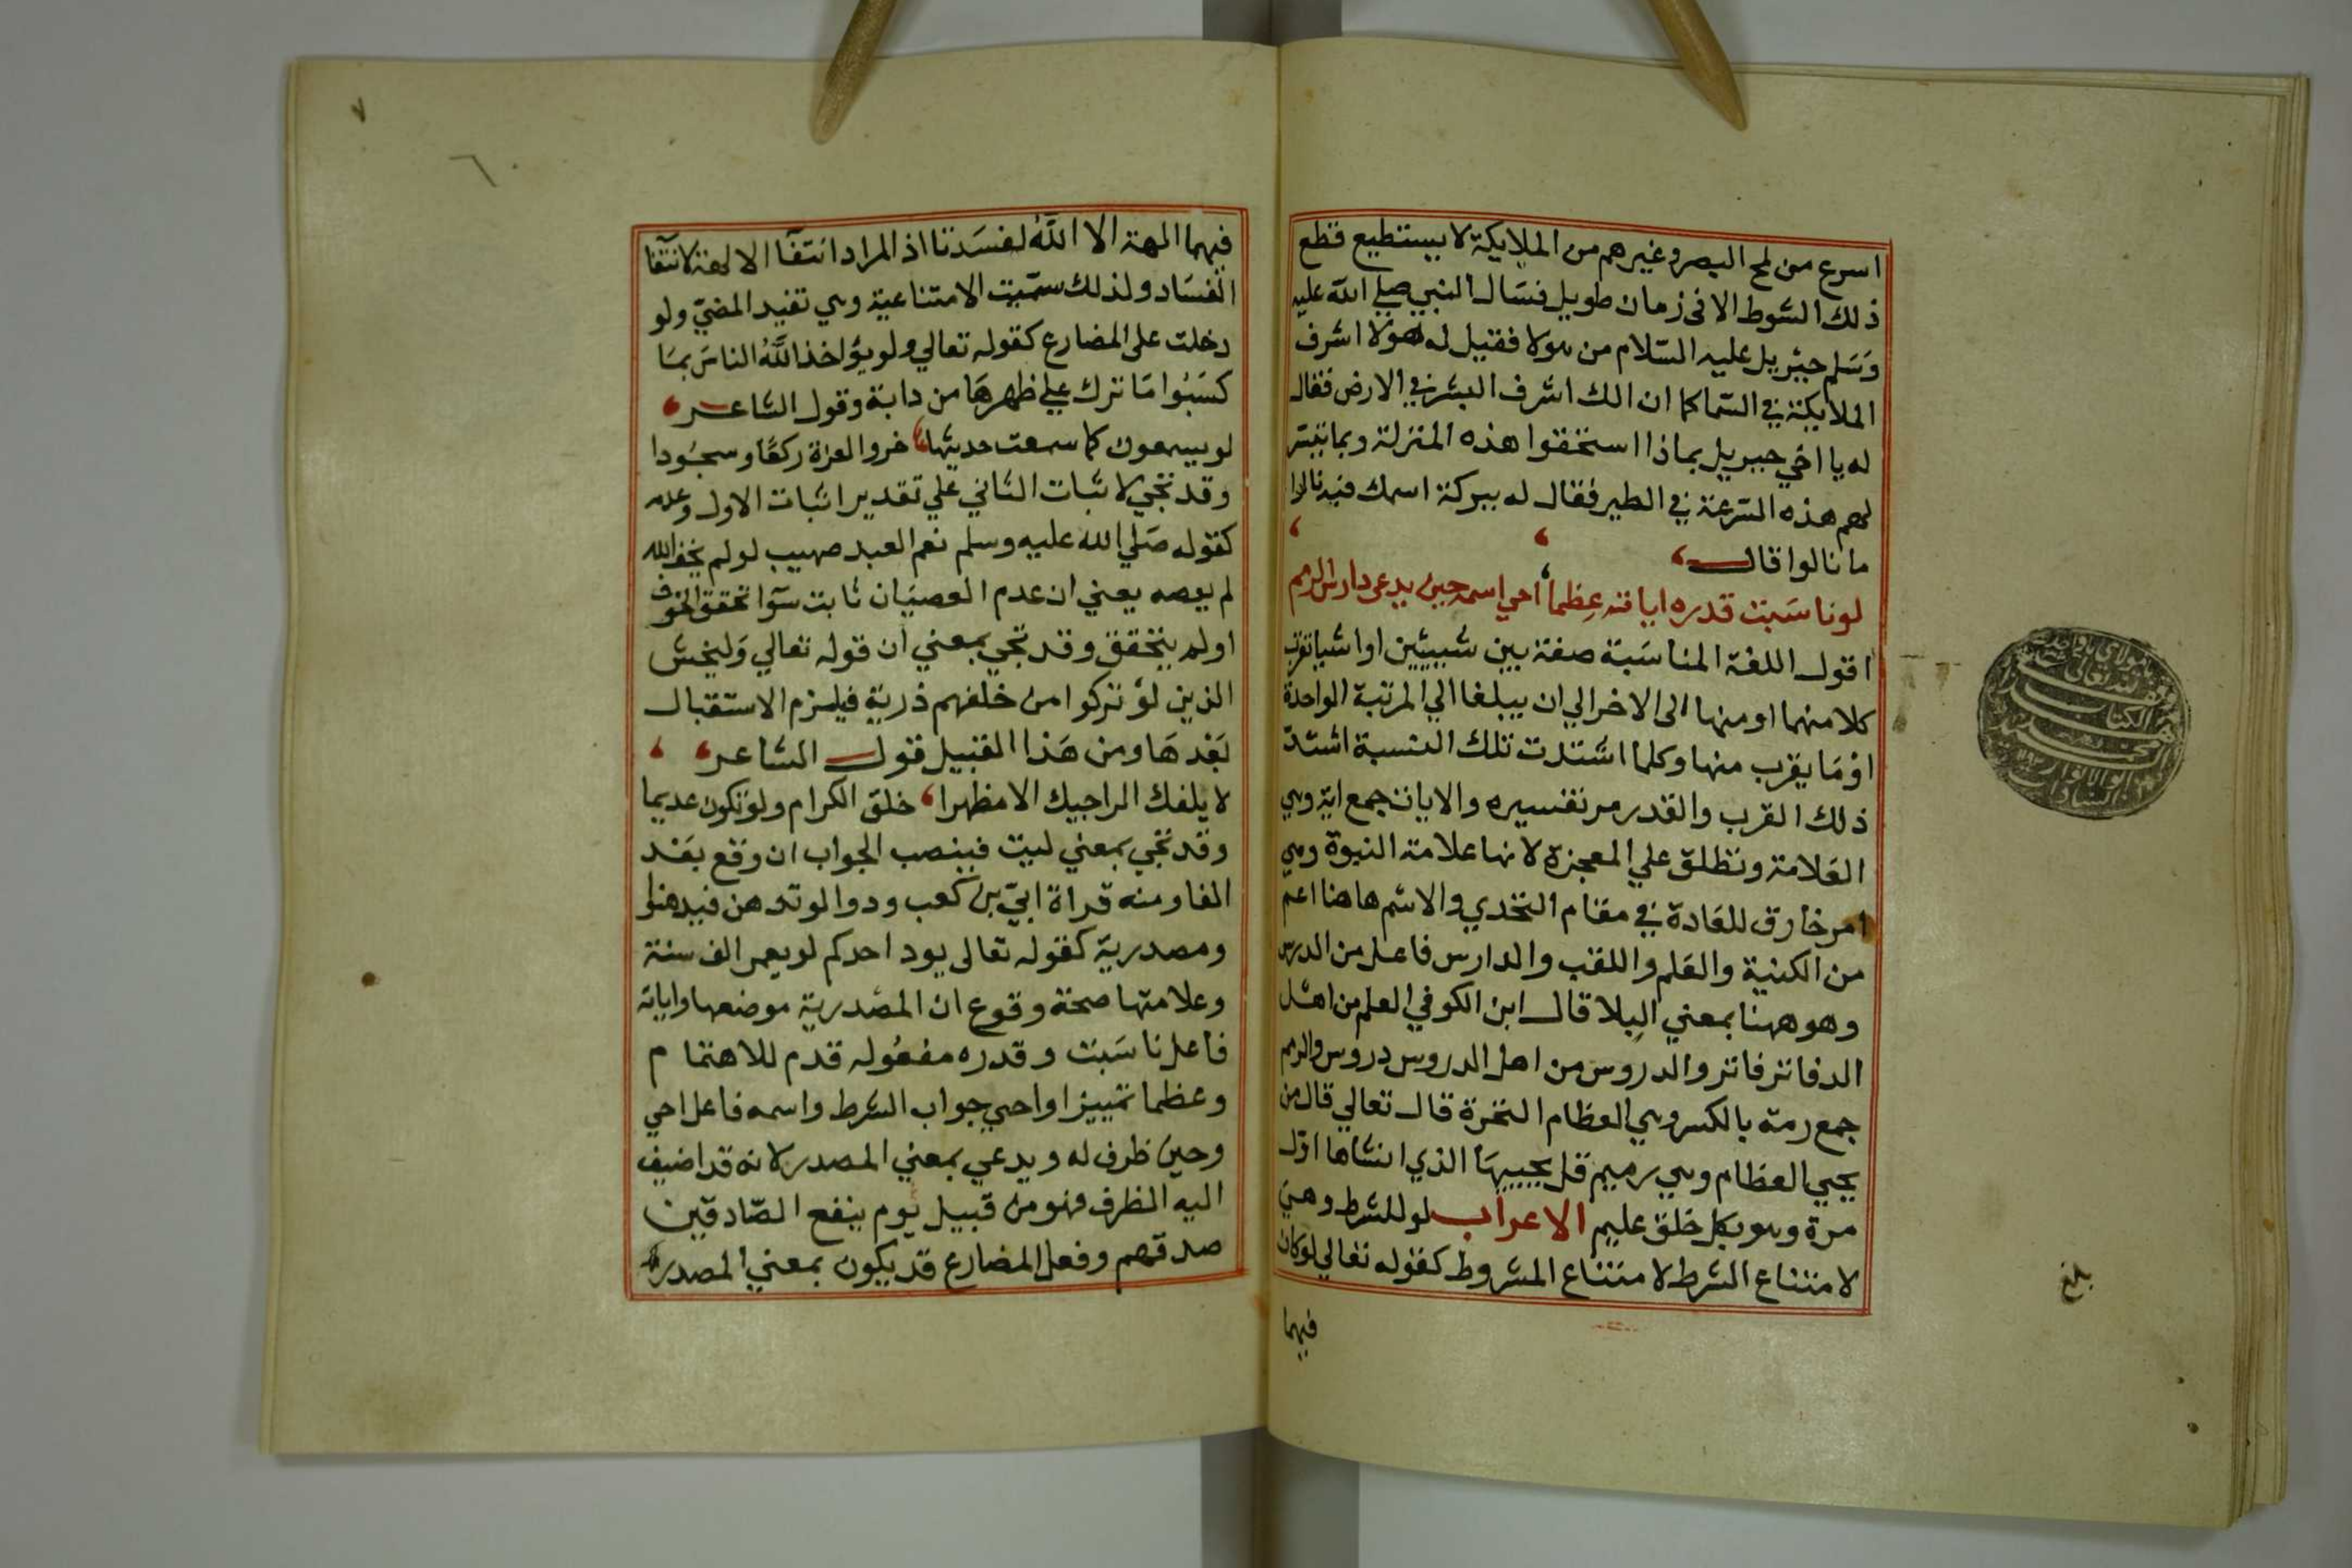 اسرع من لمح البصر وغيرهم من الملايكة لا يستطيع قطع
ذلك الشوط الا فى زمان طويل فسال النبي صلي الله عليه
وسلم جبريل عليه السلام من هولا فقيل له هولا اشرف
الملايكة في السما كما ان الك اشرف البشر في الارض فقال
له يا اخي جبريل بماذا استحقوا هذه المنزلة وبما تيسر
لهم هذه السرعة في الطير فقال له ببركة اسمك فيه نالوا
ما نالوا قال
لو ناسبت قدره اياته عظما احي اسمه حين يدعى دارس الرمم
اقول اللغة المناسبة صفة بين شييين او اشيا تقرب
كلا منهما او منها الى الاخر الي ان يبلغا الي المرتبة الواحدة
او ما يقرب منها وكلما اشتدت تلك النسبة اشتد
ذلك القرب والقدر مر تفسيره والايات جمع اية وهي
العلامة وتطلق علي المعجزة لانها علامة النبوة وهي
امر خارق للعادة في مقام التحدي والاسم هاهنا اعم
من الكنية والعلم واللقب والدارس فاعل من الدرس
وهو ههنا بمعني البلا قال ابن الكوفي العلم من اهل
الدفاتر فاتر والدروس من اهل الدروس دروس والرمم
جمع رمة بالكسر وهي العظام النخرة قال تعالي قال من
يحيي العظام وهي رميم قل يحييها الذي انشاها اول
مرة وهو بكل خلق عليم الاعراب لو للشرط وهي
لامتناع الشرط لامتناع المشروط كقوله تعالي لو كان
فيهما
بلغ
٧
٦
فيهما الهة الا الله لفسدتا اذ المراد انتفا الالهة لانتفا
الفساد ولذلك سميت الامتناعية وهي تفيد المضي ولو
دخلت على المضارع كقوله تعالي ولو يؤاخذ الله الناس بما
كسبوا ما ترك علي ظهرها من دابة وقول الشاعر
لو يسمعون كما سمعت حديثها خروا لعزة ركعا وسجودا
وقد تجي لاثبات الثاني علي تقدير اثبات الاول وعدمه
كقوله صلي الله عليه وسلم نعم العبد صهيب لو لم يخف الله
لم يعصه يعني ان عدم العصيان ثابت سوا تحقق الخوف
او لم يتحقق وقد تجي بمعني ان قوله تعالي وليخش
الذين لو تركوا من خلفهم ذرية فيلزم الاستقبال
بعدها ومن هذا القبيل قول الشاعر
لا يلفك الراجيك الا مظهرا خلق الكرام ولو تكون عديما
وقد تجي بمعني ليت فينصب الجواب ان وقع بعد
الفا ومنه قراة ابي بن كعب ودوا لو تدهن فيدهنوا
ومصدرية كقوله تعالى يود احدكم لو يعمر الف سنة
وعلامتها صحة وقوع ان المصدرية موضعها واياته
فاعل ناسبت وقدره مفعوله قدم للاهتمام
وعظما تمييز او احيي جواب الشرط واسمه فاعل احي
وحين ظرف له ويدعي بمعني المصدر لانه قد اضيف
اليه الظرف فهو من قبيل يوم ينفع الصادقين
صدقهم وفعل المضارع قد يكون بمعني المصدر